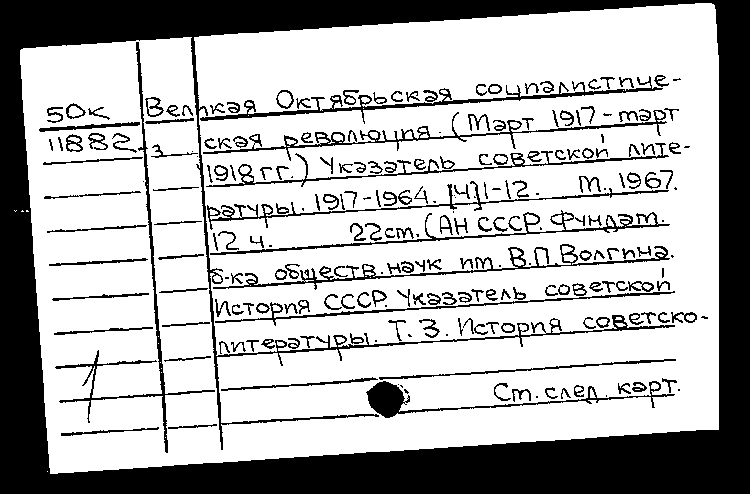 50к Великая Октябрьская социалистиче-
11882 3 ская революция. (Март 1917-март
1918 гг.) Указатель советской лите-
ратуры. 1917-1964. [Ч]1-12. М., 1967.
12 ч. 22см. (АН СССР. Фундам.
б-ка обществ. наук им. В.П. Волгина.
История СССР. Указатель советской
литературы. Т. 3. История советско-
1
См. след. карт.